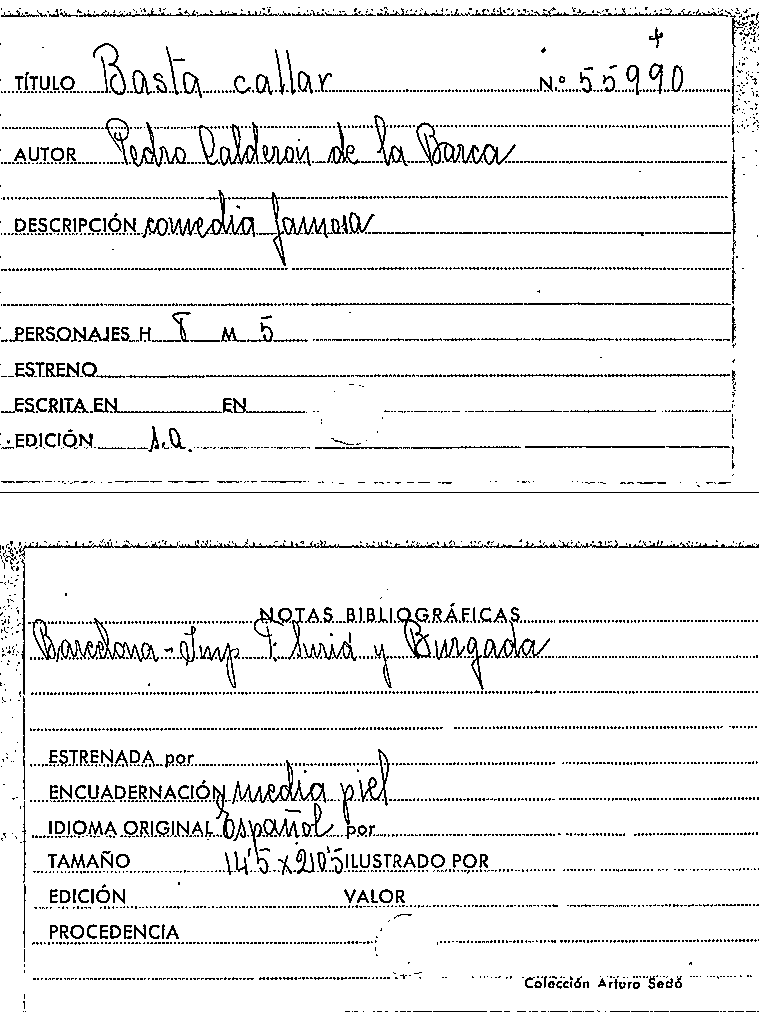 +
TÍTULO Basta callar N.º 55990
AUTOR Pedro Calderón de la Barca
DESCRIPCIÓN comedia famosa
PERSONAJES H 8 M 5
ESTRENO
ESCRITA EN EN
EDICIÓN s.a.
NOTAS BIBLIOGRÁFICAS
Barcelona - Imp F. Suriá y Burgada
ESTRENADA por
ENCUADERNACIÓN media piel
IDIOMA ORIGINAL Español por
TAMAÑO 14'5 x 210'5 ILUSTRADO POR
EDICIÓN VALOR
PROCEDENCIA
Colección Arturo Sedó